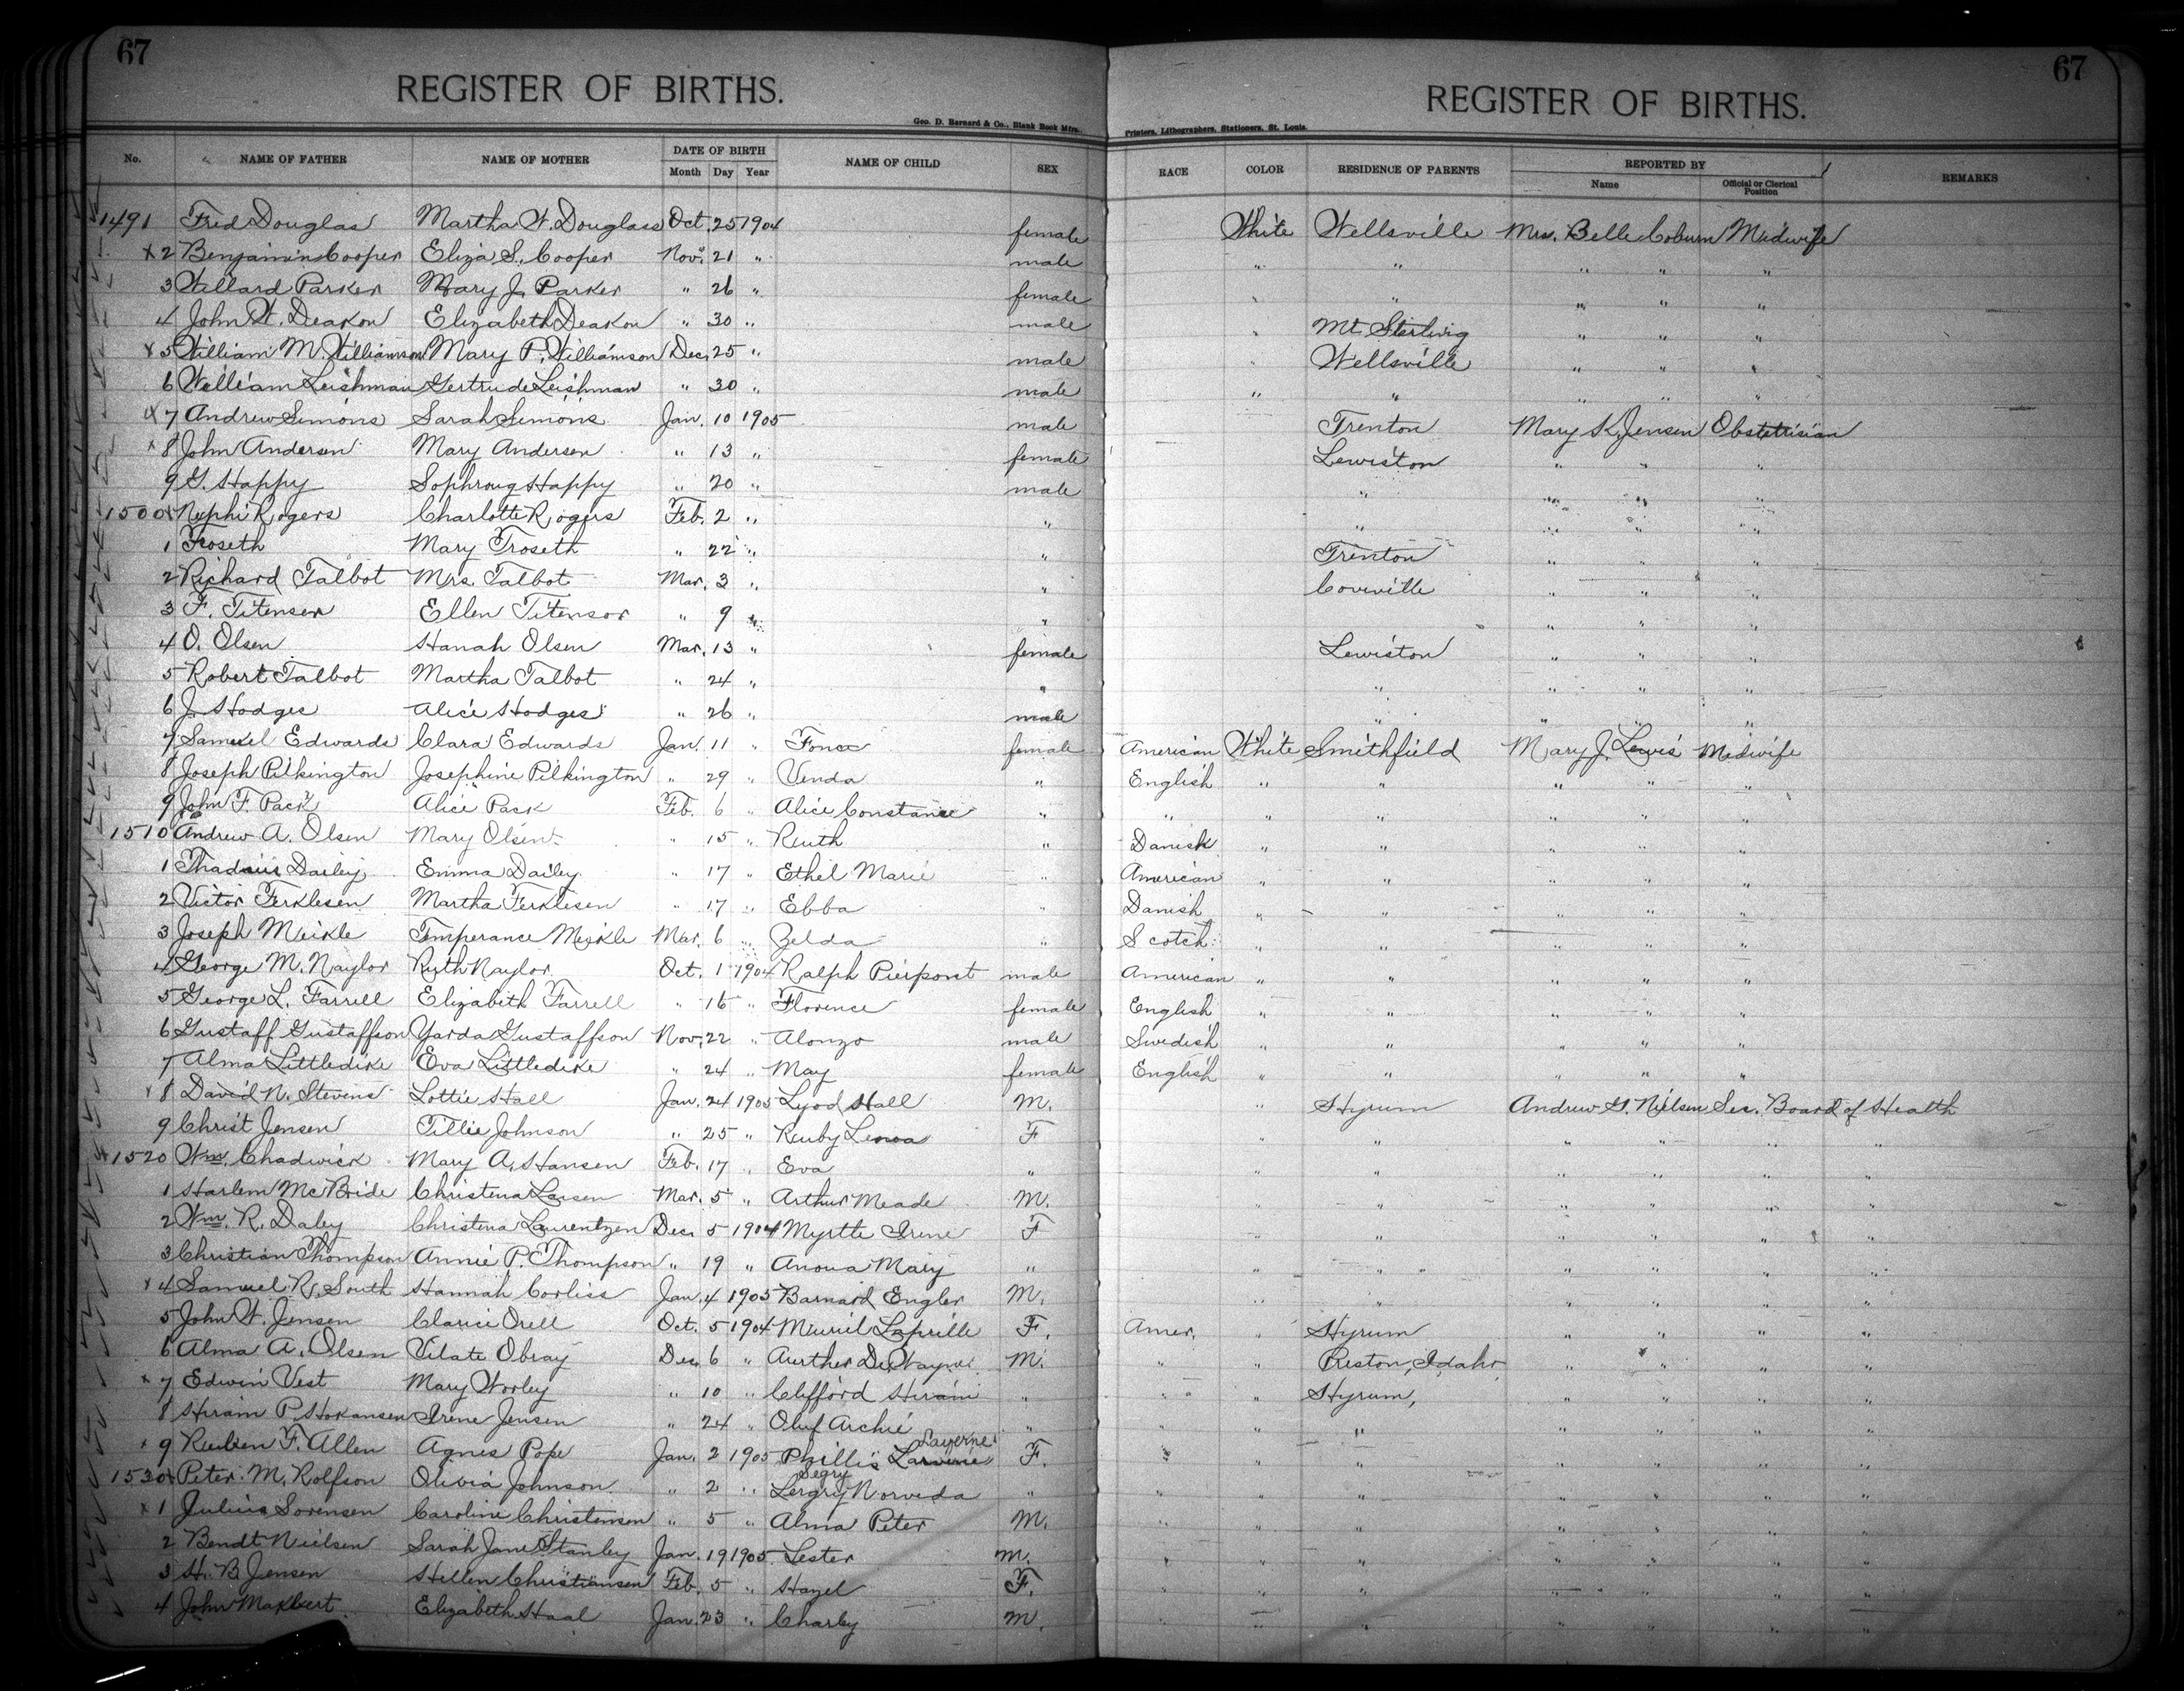 67
67
REGISTER OF BIRTHS.
REGISTER OF BIRTHS.
Geo. D. Barnard & Co., Blank Book Mfrs.,
Printers, Lithographers, Stationers, St. Louis.
No. NAME OF FATHER NAME OF MOTHER DATE OF BIRTH NAME OF CHILD SEX RACE COLOR RESIDENCE OF PARENTS REPORTED BY REMARKS
Month Day Year Name Official or Clerical Position
1491 Fred Douglas Martha W. Douglass Oct. 25 1904 female White Wellsville Mrs. Belle Coburn Midwife
x 2 Benjamin Cooper Eliza S. Cooper Nov. 21 " male " " " " "
3 Willard Parker Mary J. Parker " 26 " female " " " " "
4 John W. Deakon Elizabeth Deakon " 30 " male " Mt. Sterling " " "
x 5 William M. Williamson Mary P. Williamson Dec. 25 " male " Wellsville " " "
6 William Leishman Gertrude Leishman " 30 " male " " " " "
x 7 Andrew Simons Sarah Simons Jan. 10 1905 male Trenton Mary K. Jensen Obstetrisian
x 8 John Andersen Mary Andersen " 13 " female Lewiston " " "
9 G. Happy Happy " 20 " male " " " "
1500 x Nephi Rogers Charlotte Rogers Feb. 2 " " " " " "
1 Froseth Mary Froseth " 22 " " Trenton " " "
2 Richard Talbot Mrs. Talbot Mar. 3 " " Coveville " " "
3 F. Titensor Ellen Titensor " 9 " " " " "
4 O. Olsen Hanah Olsen Mar. 13 " female Lewiston " " "
5 Robert Talbot Martha Talbot " 24 " " " " " "
6 J. Hodges Alice Hodges " 26 " male " " " "
7 Samuel Edwards Clara Edwards Jan. 11 " female American White Smithfield Mary J. Lewis Midwife
8 Joseph Pilkington Josephine Pilkington " 29 " Venda " English " " " " "
9 John F. Pack Alice Pack Feb. 6 " Alice Constance " " " " " " "
1510 Andrew A. Olsen Mary Olsen " 15 " Ruth " Danish " " " " "
1 Dailey Emma Dailey " 17 " Ethel Marie " American " " " " "
2 Victor Ferklesen Martha Ferklesen " 17 " Ebba " Danish " " " " "
3 Joseph Meikle Temperance Meikle Mar. 6 " Zelda " Scotch " " " " "
4 George M. Naylor Ruth Naylor Oct. 1 1904 Ralph Pierpont male American " " " " "
5 George L. Farrell Elizabeth Farrell " 16 " Florence female English " " " " "
6 Gustaff Gustaffson Yarda Gustaffson Nov. 22 " Alonzo male Swedish " " " " "
7 Alma Littledike Eva Littledike " 24 " May female English " " " " "
x 8 David N. Stevens Lottie Hall Jan. 24 1905 Lyod Hall M. " Hyrum Andrew G. Nielsen Sec. Board of Health
9 Christ Jensen Tillie Johnson " 25 " Ruby F " " " " " "
x 1520 Wm. Chadwick Mary A. Hansen Feb. 17 " Eva " " " " " " "
1 Harlem McBride Christena Larsen Mar. 5 " Arthur Meade M. " " " " " "
2 Wm. R. Daley Christena Laurentzen Dec. 5 1904 Myrtle Irene F " " " " " "
3 Christian Thompson Annie P. Thompson " 19 " Anona Mary " " " " " " "
x 4 Samuel R. South Hannah Corliss Jan. 4 1905 Barnard Engler M. " " " " " "
5 John W. Jensen Clarice Orell Oct. 5 1904 Muriel Laprille F. Amer. " Hyrum " " " "
6 Alma A. Olsen Vilate Obray Dec. 6 " Aurther DeWayne M. " " Preston, Idaho " " " "
x 7 Edwin Vest Mary Worley " 10 " Clifford Hiram " " " Hyrum, " " " "
8 Hiram P. Hokansen Irene Jensen " 24 " Oluf Archie " " " " " " " "
Laverne
x 9 Reuben F. Allen Agnes Pope Jan. 2 1905 Phillis F. " " " " " " "
Segry
1530 x Peter M. Rolfson Olivia Johnson " 2 " Lergry Norveda " " " " " " " "
x 1 Julius Sorensen Caroline Christensen " 5 " Alma Peter M. " " " " " " "
2 Bendt Nielsen Sarah Jane Stanley Jan. 19 1905 Lester M. " " " " " " "
3 H. B. Jensen Hellen Christiansen Feb. 5 " Hazel F. " " " " " " "
4 John Elizabeth Haal Jan. 23 " Charley M. " " " " " " "